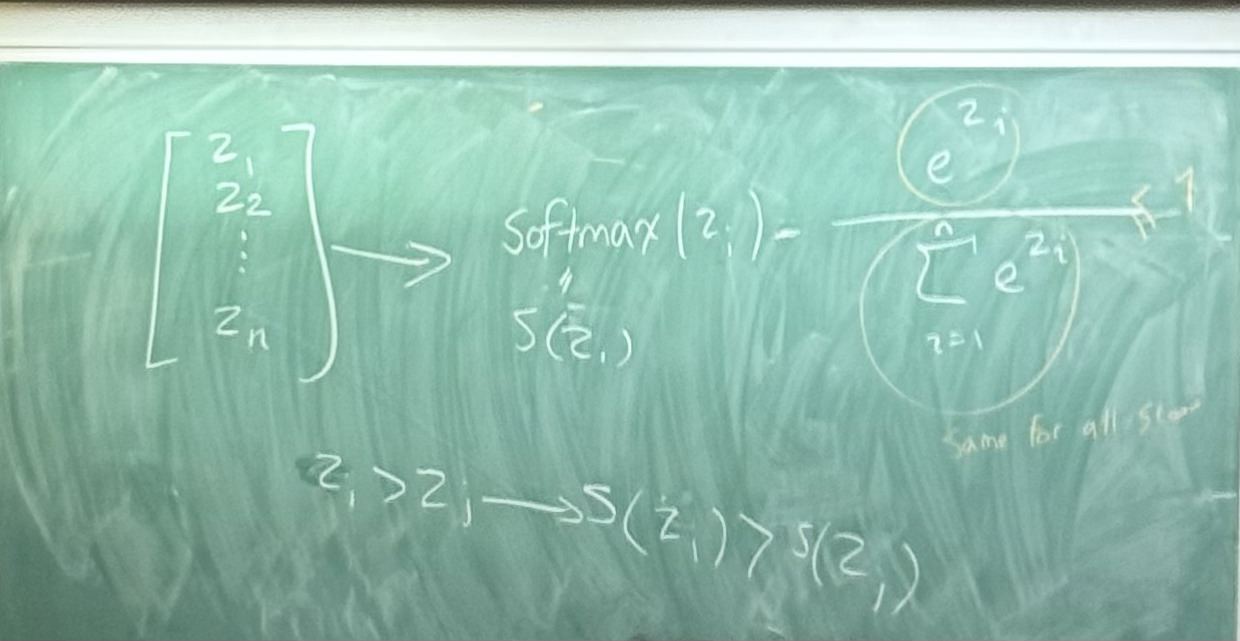 [z₁ z₂ ⋮ zₙ] → softmax(zᵢ) - e^{zᵢ} / ∑_{i=1}^{n} e^{zᵢ} ≤ 1
"
S(zᵢ)
same for all
zᵢ > zⱼ → S(zᵢ) > S(zⱼ)